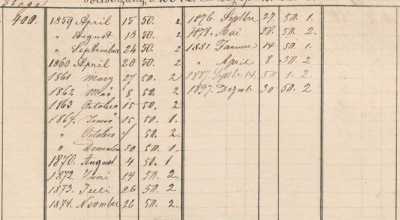 400. 1859 April 15 50. 2
" August 18 50. 2
" September 24 50. 2
1860 April 20 50. 2
1861 Marz 27 50. 2
1862 Mai 8 52. 2
1863 October 15 50. 2
1864 Januar 15 50. 1
" October 7 50. 2
" December 30 50. 1
1870. August 4 50. 1
1872. Juni 14 50. 2
1873. Juli 26 50. 2
1874. November 26 50. 2
1876. Septbr 27. 50. 1.
1878. Mai 28. 50. 2.
1881. Januar 14 50. 2
" April 8 50. 2
1887 Septbr 14 50. 1. 2
1897. Dezemb 30 50. 2